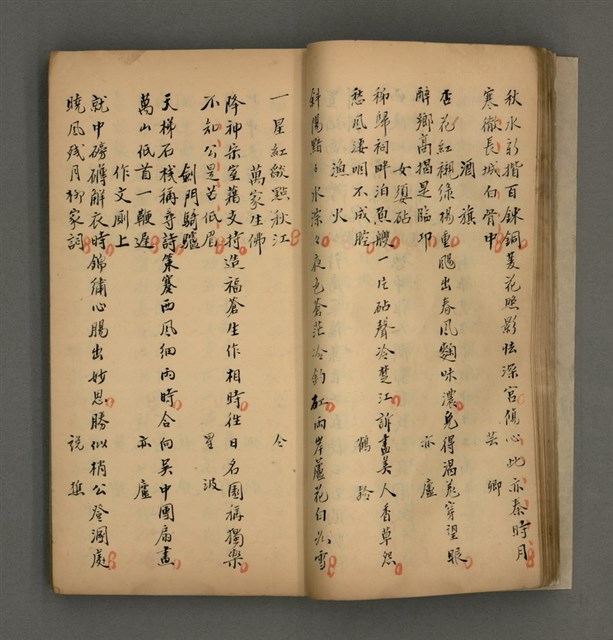 秋水新揩百鍊銅菱花照影怯深宮傷心此亦秦時月
寒徹長城白骨中　芸卿
酒旗
杏花紅襯綠楊垂颺出春風麴味濃免得渴羌穿望眼
醉鄉高揭是臨邛　亦廬
女嬃砧
秭歸祠畔泊魚艭一片砧聲冷楚江訴盡美人香草怨
愁風淒咽不成腔　鶴舲
漁火
斜陽點點水潆々夜色蒼茫冷釣缸兩岸蘆花白似雪
一星紅燄點秋江　仝
萬家生佛
降神崇室藉支持造福蒼生作相時往日名園稱獨樂
不知公是苦低眉　星波
劍門騎驢
天梯石棧稱奇詩策蹇西風細雨時合向吳中團扇畫
萬山低首一鞭遲　亦廬
作文廁上
就中磅礡解衣時錦繡心腸出妙思勝似梢公登溷處
曉風残月柳家詞　說樵